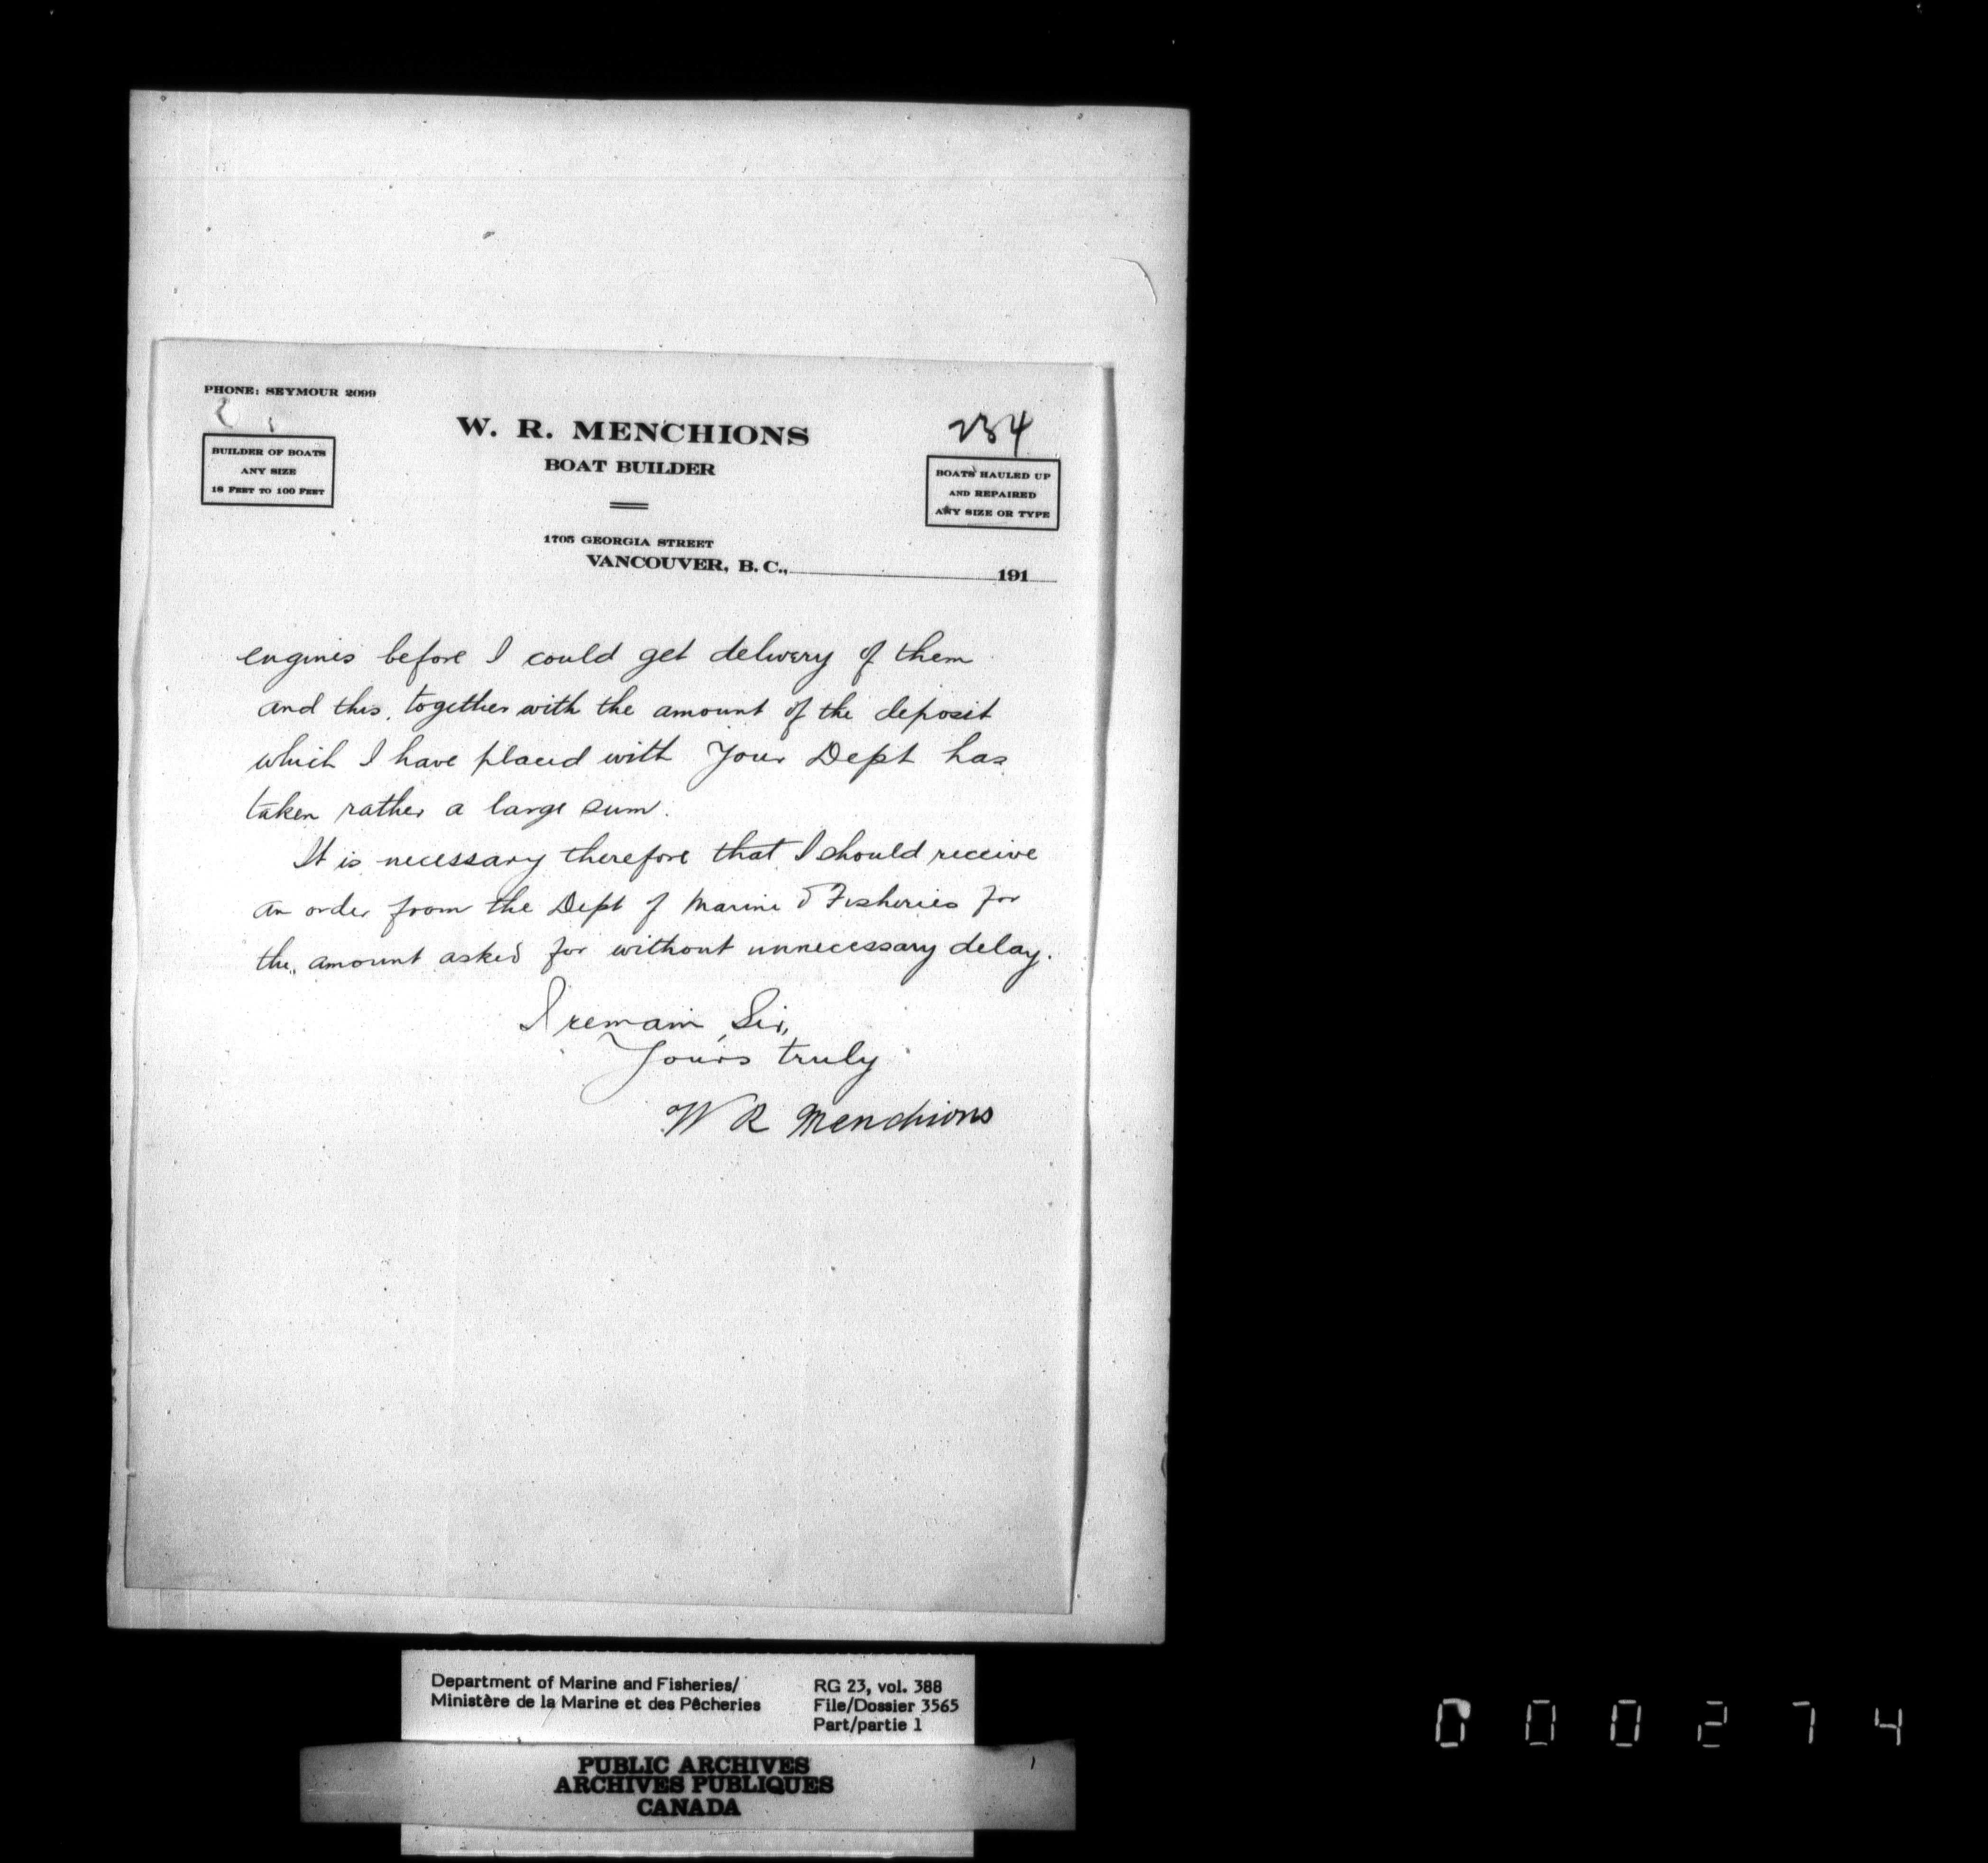 PHONE: SEYMOUR 2099
W. R. MENCHIONS
BOAT BUILDER
234
BUILDER OF BOATS
ANY SIZE
18 FEET TO 100 FEET
BOATS HAULED UP
AND REPAIRED
ANY SIZE OR TYPE
1705 GEORGIA STREET
VANCOUVER, B. C., 191
engines before I could get delivery of them
and this, together with the amount of the deposit
which I have placed with Your Dept has
taken rather a large sum.
It is necessary therefore that I should receive
an order from the Dept of Marine & Fisheries for
the amount asked for without unnecessary delay.
I remain, Sir,
Yours truly
W R Menchions
Department of Marine and Fisheries/
Ministère de la Marine et des Pêcheries
RG 23, vol. 388
File/Dossier 3565
Part/partie 1
PUBLIC ARCHIVES
ARCHIVES PUBLIQUES
CANADA
000274